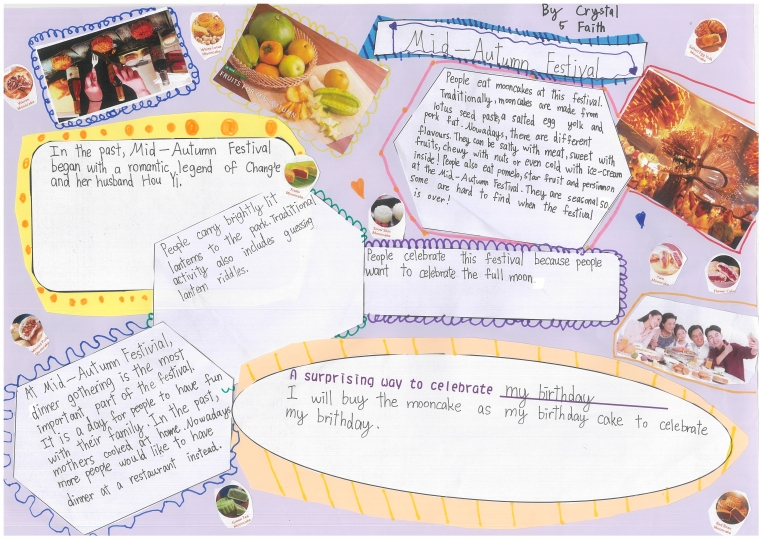 By Crystal
5 Faith
Mid-Autumn Festival
People eat mooncakes at this festival.
Traditionally, mooncakes are made from
lotus seed paste, a salted egg yolk and
pork fat. Nowadays, there are different
flavours. They can be salty with meat, sweet with
fruits, chewy with nuts or even cold with ice-cream
inside! People also eat pomelo, star fruit and persimmon
at the Mid-Autumn Festival. They are seasonal so
some are hard to find when the festival
is over!
In the past, Mid-Autumn Festival
began with a romantic legend of Chang'e
and her husband Hou Yi.
People carry brightly lit
lanterns to the park. Traditional
activity also includes guessing
lantern riddles.
People celebrate this festival because people
want to celebrate the full moon.
At Mid-Autumn Festivial,
dinner gathering is the most
important part of the festival.
It is a day for people to have fun
with their family. In the past,
mothers cooked at home. Nowadays
more people would like to have
dinner at a restaurant instead.
A surprising way to celebrate my birthday
I will buy the mooncake as my birthday cake to celebrate
my brithday.